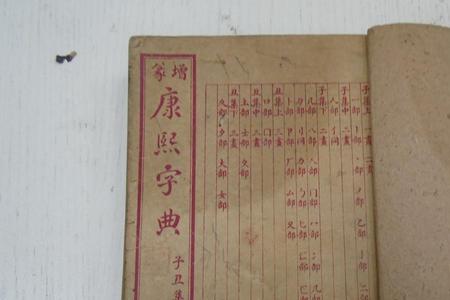 增篆
康熙字典
子丑集
子集上 一畫 二畫
一部 丨部 丶部 丿部 乙部 亅部 二
子集中 二畫
人部 亻同
子集下 二畫
儿部 入部 八部 冂部 冖部 冫部 几部
刀部 刂同 力部 勹部 匕部 匚部 匸
卜部 卩部 厂部 厶部 又部
丑集上 三畫
口部 囗部
丑集中 三畫
土部 士部 夂部
丑集下 三畫
夊部 夕部 大部 女部